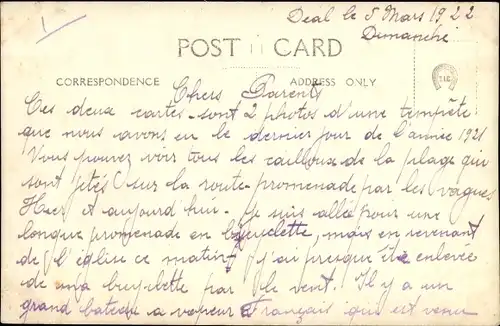 1
Deal le 5 Mars 1922
Dimanche
POST CARD
CORRESPONDENCE
ADDRESS ONLY
Chers Parents
Ces deux cartes sont 2 photos d'une tempête
que nous avons eu le dernier jour de l'année 1921
Vous pouvez voir tous les cailloux de la plage qui
sont jetés sur la route-promenade par les vagues
Hier et aujourd'hui. Je suis allée pour une
longue promenade en bicyclette, mais en revenant
de l'église ce matin j'ai presque été enlevée
de ma bicyclette par le vent. Il y a un
grand bateau a vapeur Français qui est venu